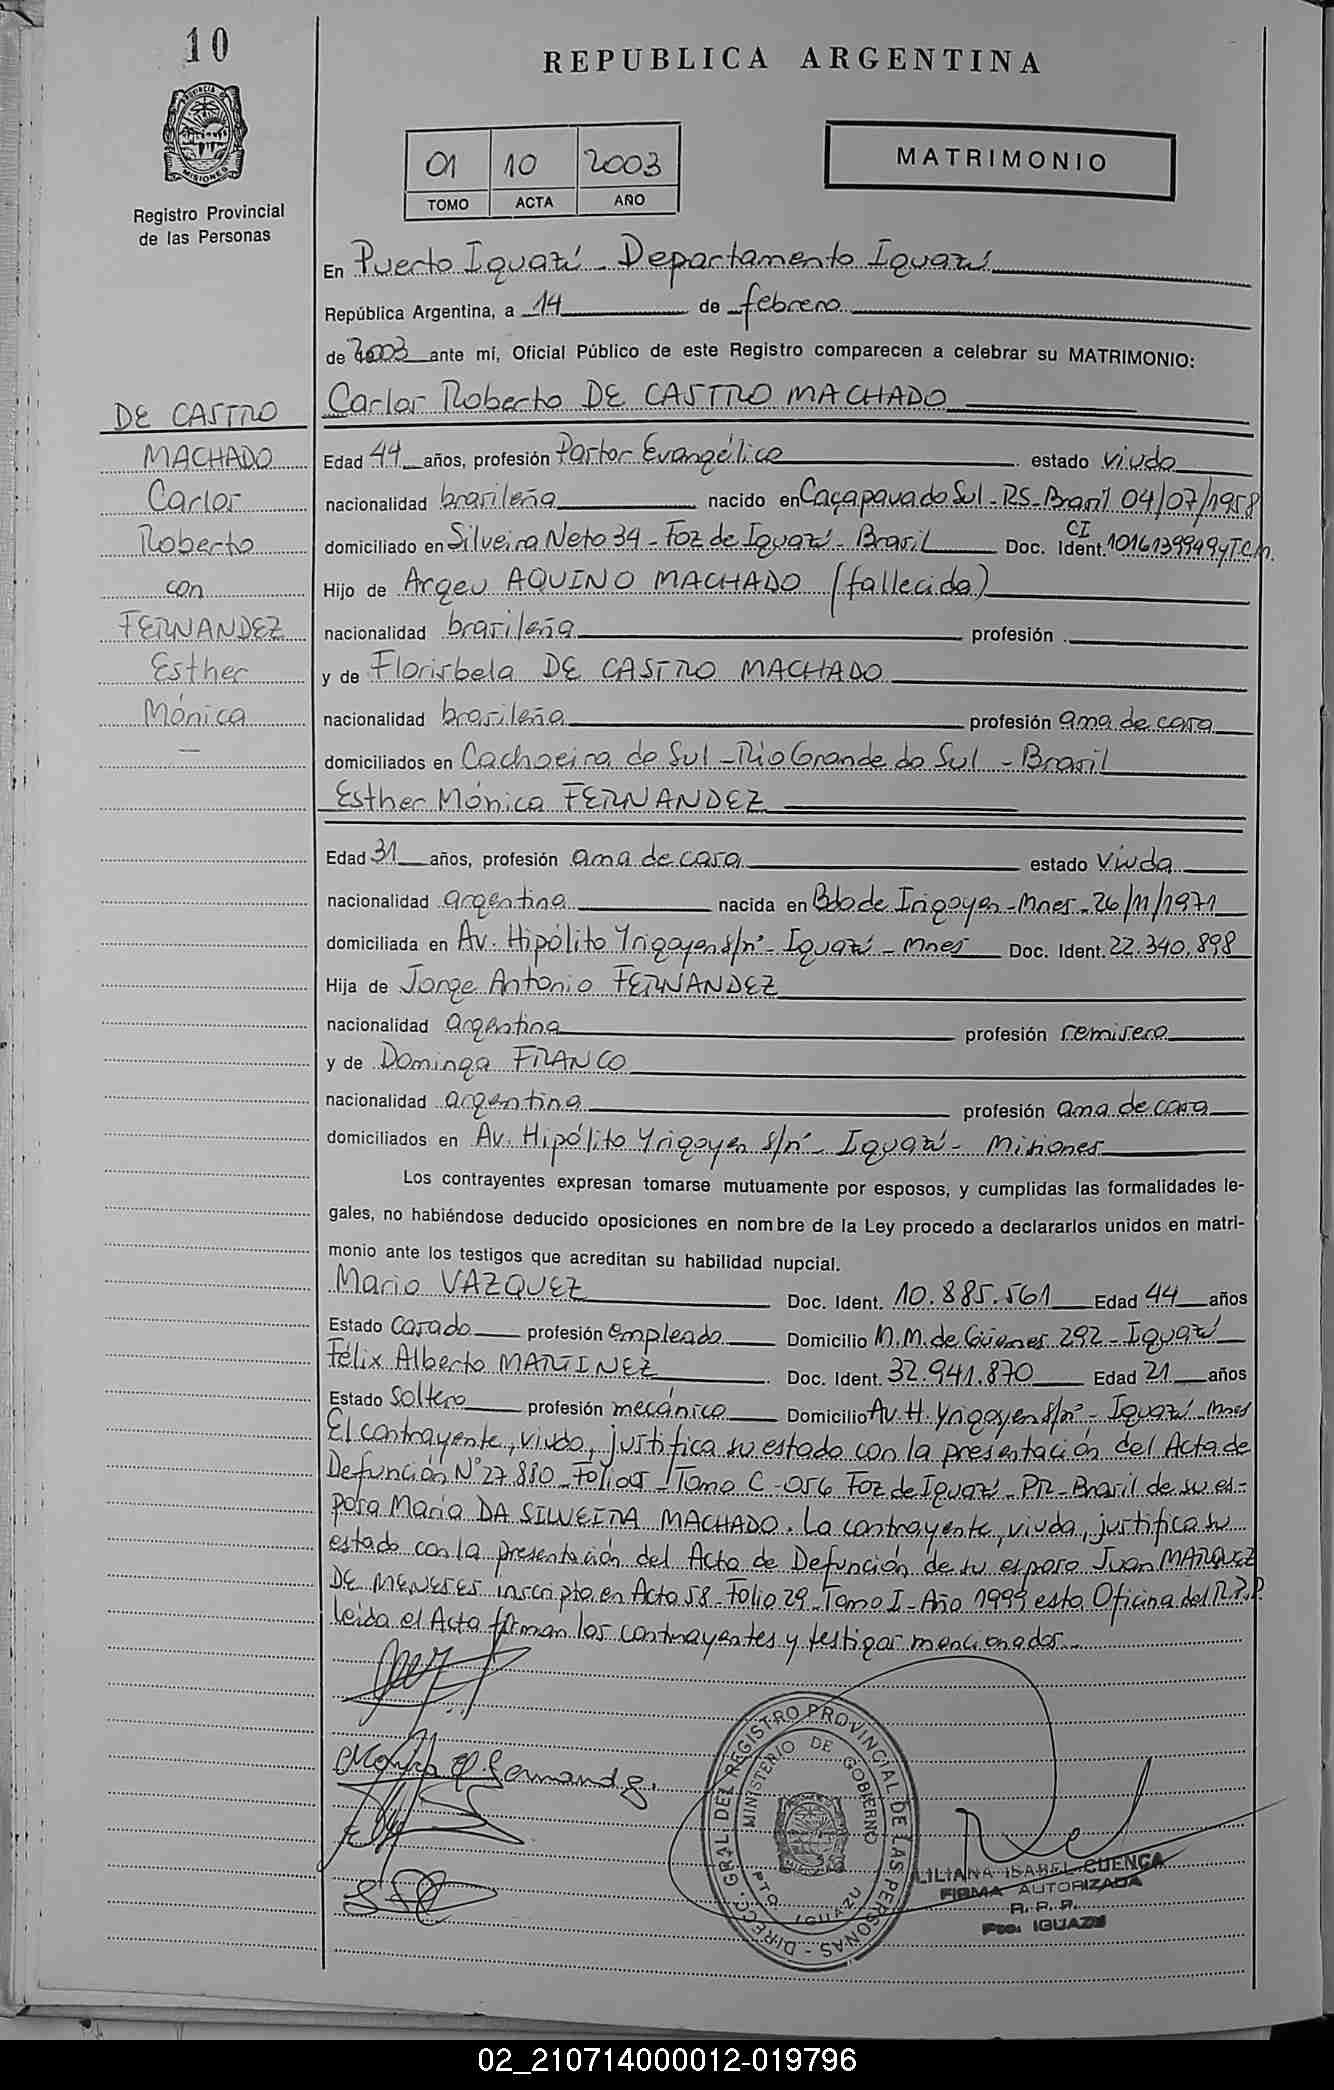 10
REPUBLICA ARGENTINA
PROVINCIA DE
MISIONES
Registro Provincial
de las Personas
01 10 2003
TOMO ACTA AÑO
MATRIMONIO
En Puerto Iguazú - Departamento Iguazú
República Argentina, a 14 de febrero
de 2003 ante mí, Oficial Público de este Registro comparecen a celebrar su MATRIMONIO:
DE CASTRO
MACHADO
Carlos
Roberto
con
FERNANDEZ
Esther
Mónica
Carlos Roberto DE CASTRO MACHADO
Edad 44 años, profesión Pastor Evangélico estado viudo
nacionalidad brasileña nacido en Caçapava do Sul - RS - Brasil 04/07/1958
domiciliado en Silveira Neto 34 - Foz de Iguazú - Brasil Doc. Ident. CI 1016139949 y T.C.M.
Hijo de Argeu AQUINO MACHADO (fallecido)
nacionalidad brasileña profesión
y de Florisbela DE CASTRO MACHADO
nacionalidad brasileña profesión ama de casa
domiciliados en Cachoeira do Sul - Rio Grande do Sul - Brasil
Esther Mónica FERNANDEZ
Edad 31 años, profesión ama de casa estado viuda
nacionalidad argentina nacida en Bdo de Irigoyen - Mnes - 26/11/1971
domiciliada en Av. Hipólito Yrigoyen s/nº - Iguazú - Mnes Doc. Ident. 22.340.898
Hija de Jorge Antonio FERNANDEZ
nacionalidad argentina profesión remisero
y de Dominga FRANCO
nacionalidad argentina profesión ama de casa
domiciliados en Av. Hipólito Yrigoyen s/nº - Iguazú - Misiones
Los contrayentes expresan tomarse mutuamente por esposos, y cumplidas las formalidades le-
gales, no habiéndose deducido oposiciones en nombre de la Ley procedo a declararlos unidos en matri-
monio ante los testigos que acreditan su habilidad nupcial.
Mario VAZQUEZ Doc. Ident. 10.885.561 Edad 44 años
Estado casado profesión empleado Domicilio M.M. de Güemes 292 - Iguazú
Félix Alberto MARTINEZ Doc. Ident. 32.941.870 Edad 21 años
Estado soltero profesión mecánico Domicilio Av. H. Yrigoyen s/nº - Iguazú - Mnes
El contrayente, viudo, justifica su estado con la presentación del Acta de
Defunción Nº 27.880 - Folio - Tomo C - 056 Foz de Iguazú - PR - Brasil de su es-
posa Maria DA SILVEIRA MACHADO. La contrayente, viuda, justifica su
estado con la presentación del Acta de Defunción de su esposo Juan MARQUEZ
DE MENESES inscripto en Acta 58 - Folio 29 - Tomo I - Año 1999 esta Oficina del R.P.P.
Leída el Acta firman los contrayentes y testigos mencionados.
DIRECC. GRAL. DEL REGISTRO PROVINCIAL DE LAS PERSONAS
MINISTERIO DE GOBIERNO
PTO. IGUAZU
LILIANA ISABEL CUENCA
FIRMA AUTORIZADA
R. P. P.
Pto. IGUAZU
02_210714000012-019796